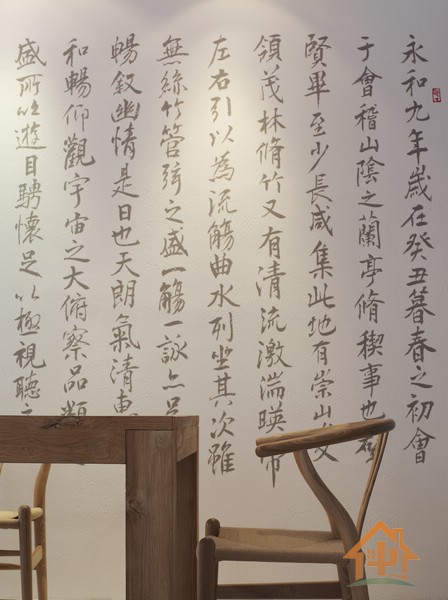 永和九年歲在癸丑暮春之初會
于會稽山陰之蘭亭脩稧事也羣
賢畢至少長咸集此地有崇山
領茂林脩竹又有清流激湍暎帶
左右引以為流觴曲水列坐其次雖
無絲竹管弦之盛一觴一詠亦足
暢叙幽情是日也天朗氣清惠
和暢仰觀宇宙之大俯察品類
盛所以遊目騁懷足以極視聽之